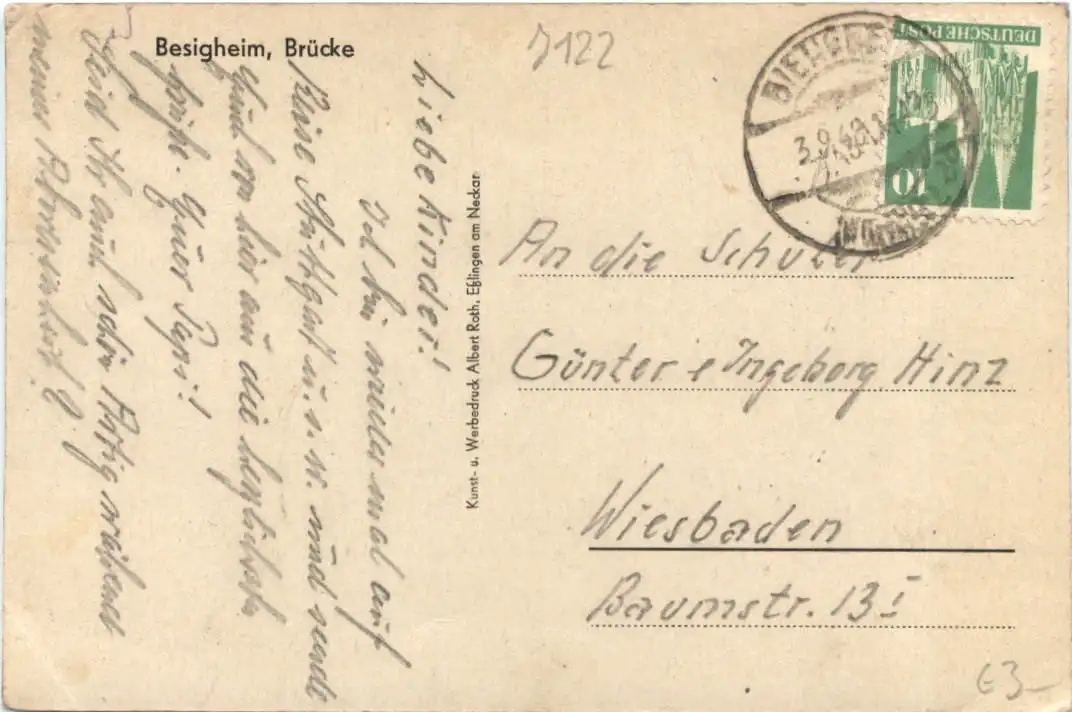 Besigheim, Brücke
7122
Liebe Kinder!
Ich bin mal auf
Reise Stuttgart u.s.w. und sende
Euch von hier aus die herzlichsten
Grüße. Euer Papi!
Seid Ihr auch schön artig während
meiner Abwesenheit?
Kunst- u. Werbedruck Albert Roth, Eßlingen am Neckar
DEUTSCHE POST
10
3.9.49
(WÜRTT)
An die Schüler
Günter & Ingeborg Hinz
Wiesbaden
Baumstr. 13 I
€3-